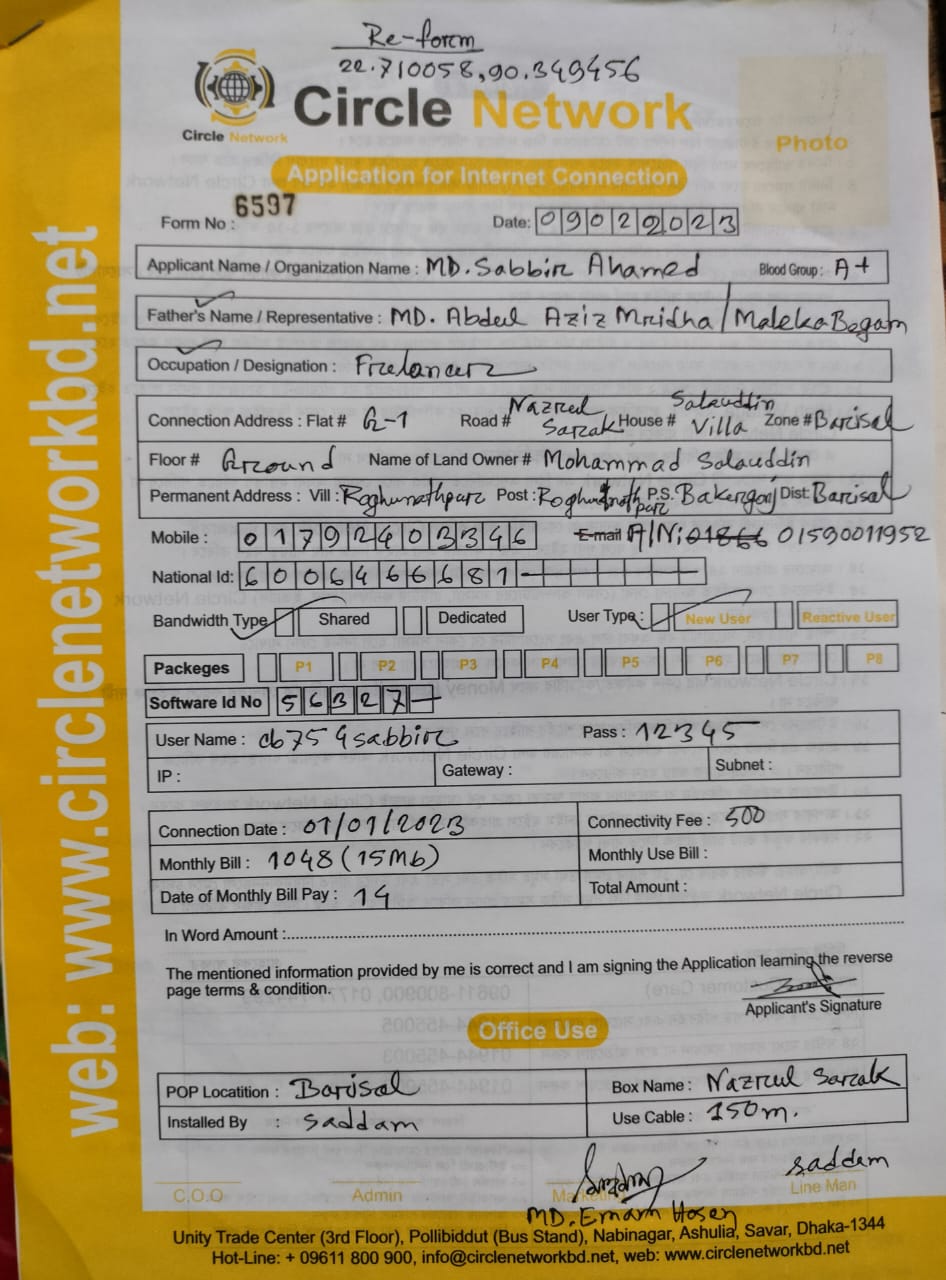 Re-form
22.710058,90.349456
Circle Network
Circle Network
Photo
Application for Internet Connection
Form No : 6597 Date: 09022023
Applicant Name / Organization Name : MD. Sabbir Ahamed Blood Group : A+
Father's Name / Representative : MD. Abdul Aziz Mridha / Maleka Begam
Occupation / Designation : Freelancer
Connection Address : Flat # G-1 Road # Nazrul Sarak House # Salauddin Villa Zone # Barisal
Floor # Ground Name of Land Owner # Mohammad Salauddin
Permanent Address : Vill : Roghunathpur Post : Roghunathpur P.S. Bakergonj Dist: Barisal
Mobile : 01792403346 E-mail A/N: 01866 01590011952
National Id: 6006466681
Bandwidth Type Shared Dedicated User Type: New User Reactive User
Packeges P1 P2 P3 P4 P5 P6 P7 P8
Software Id No 56327
User Name : cb759sabbir Pass : 12345
IP : Gateway : Subnet :
Connection Date : 01/01/2023 Connectivity Fee : 500
Monthly Bill : 1048 (15Mb) Monthly Use Bill :
Date of Monthly Bill Pay : 14 Total Amount :
In Word Amount :
The mentioned information provided by me is correct and I am signing the Application learning the reverse
page terms & condition.
Applicant's Signature
Office Use
POP Locatition : Barisal Box Name : Nazrul Sarak
Installed By : Saddam Use Cable : 150m.
saddam
C.O.O Admin Marketing Line Man
MD. Emam Hosen
Unity Trade Center (3rd Floor), Pollibiddut (Bus Stand), Nabinagar, Ashulia, Savar, Dhaka-1344
Hot-Line: + 09611 800 900, info@circlenetworkbd.net, web: www.circlenetworkbd.net
web: www.circlenetworkbd.net